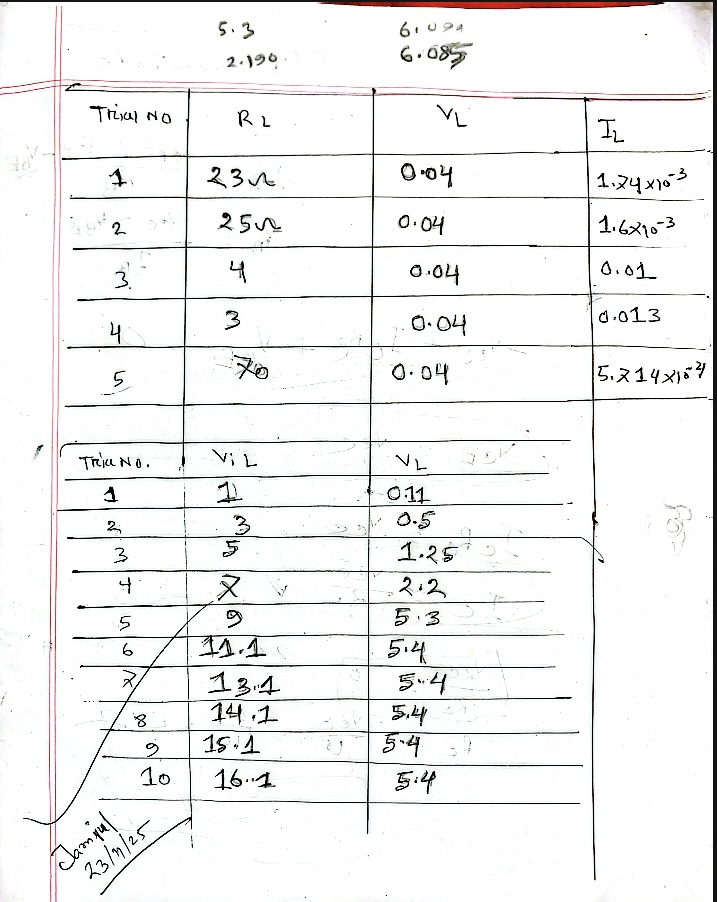 5.3 6.091
2.190 6.085
Trial No RL VL IL
1 23Ω 0.04 1.74x10-3
2 25Ω 0.04 1.6x10-3
3. 4 0.04 0.01
4 3 0.04 0.013
5 70 0.04 5.714x10-4
Trial No. ViL VL
1 1 0.11
2 3 0.5
3 5 1.25
4 7 2.2
5 9 5.3
6 11.1 5.4
7 13.1 5.4
8 14.1 5.4
9 15.1 5.4
10 16.1 5.4
23/11/25